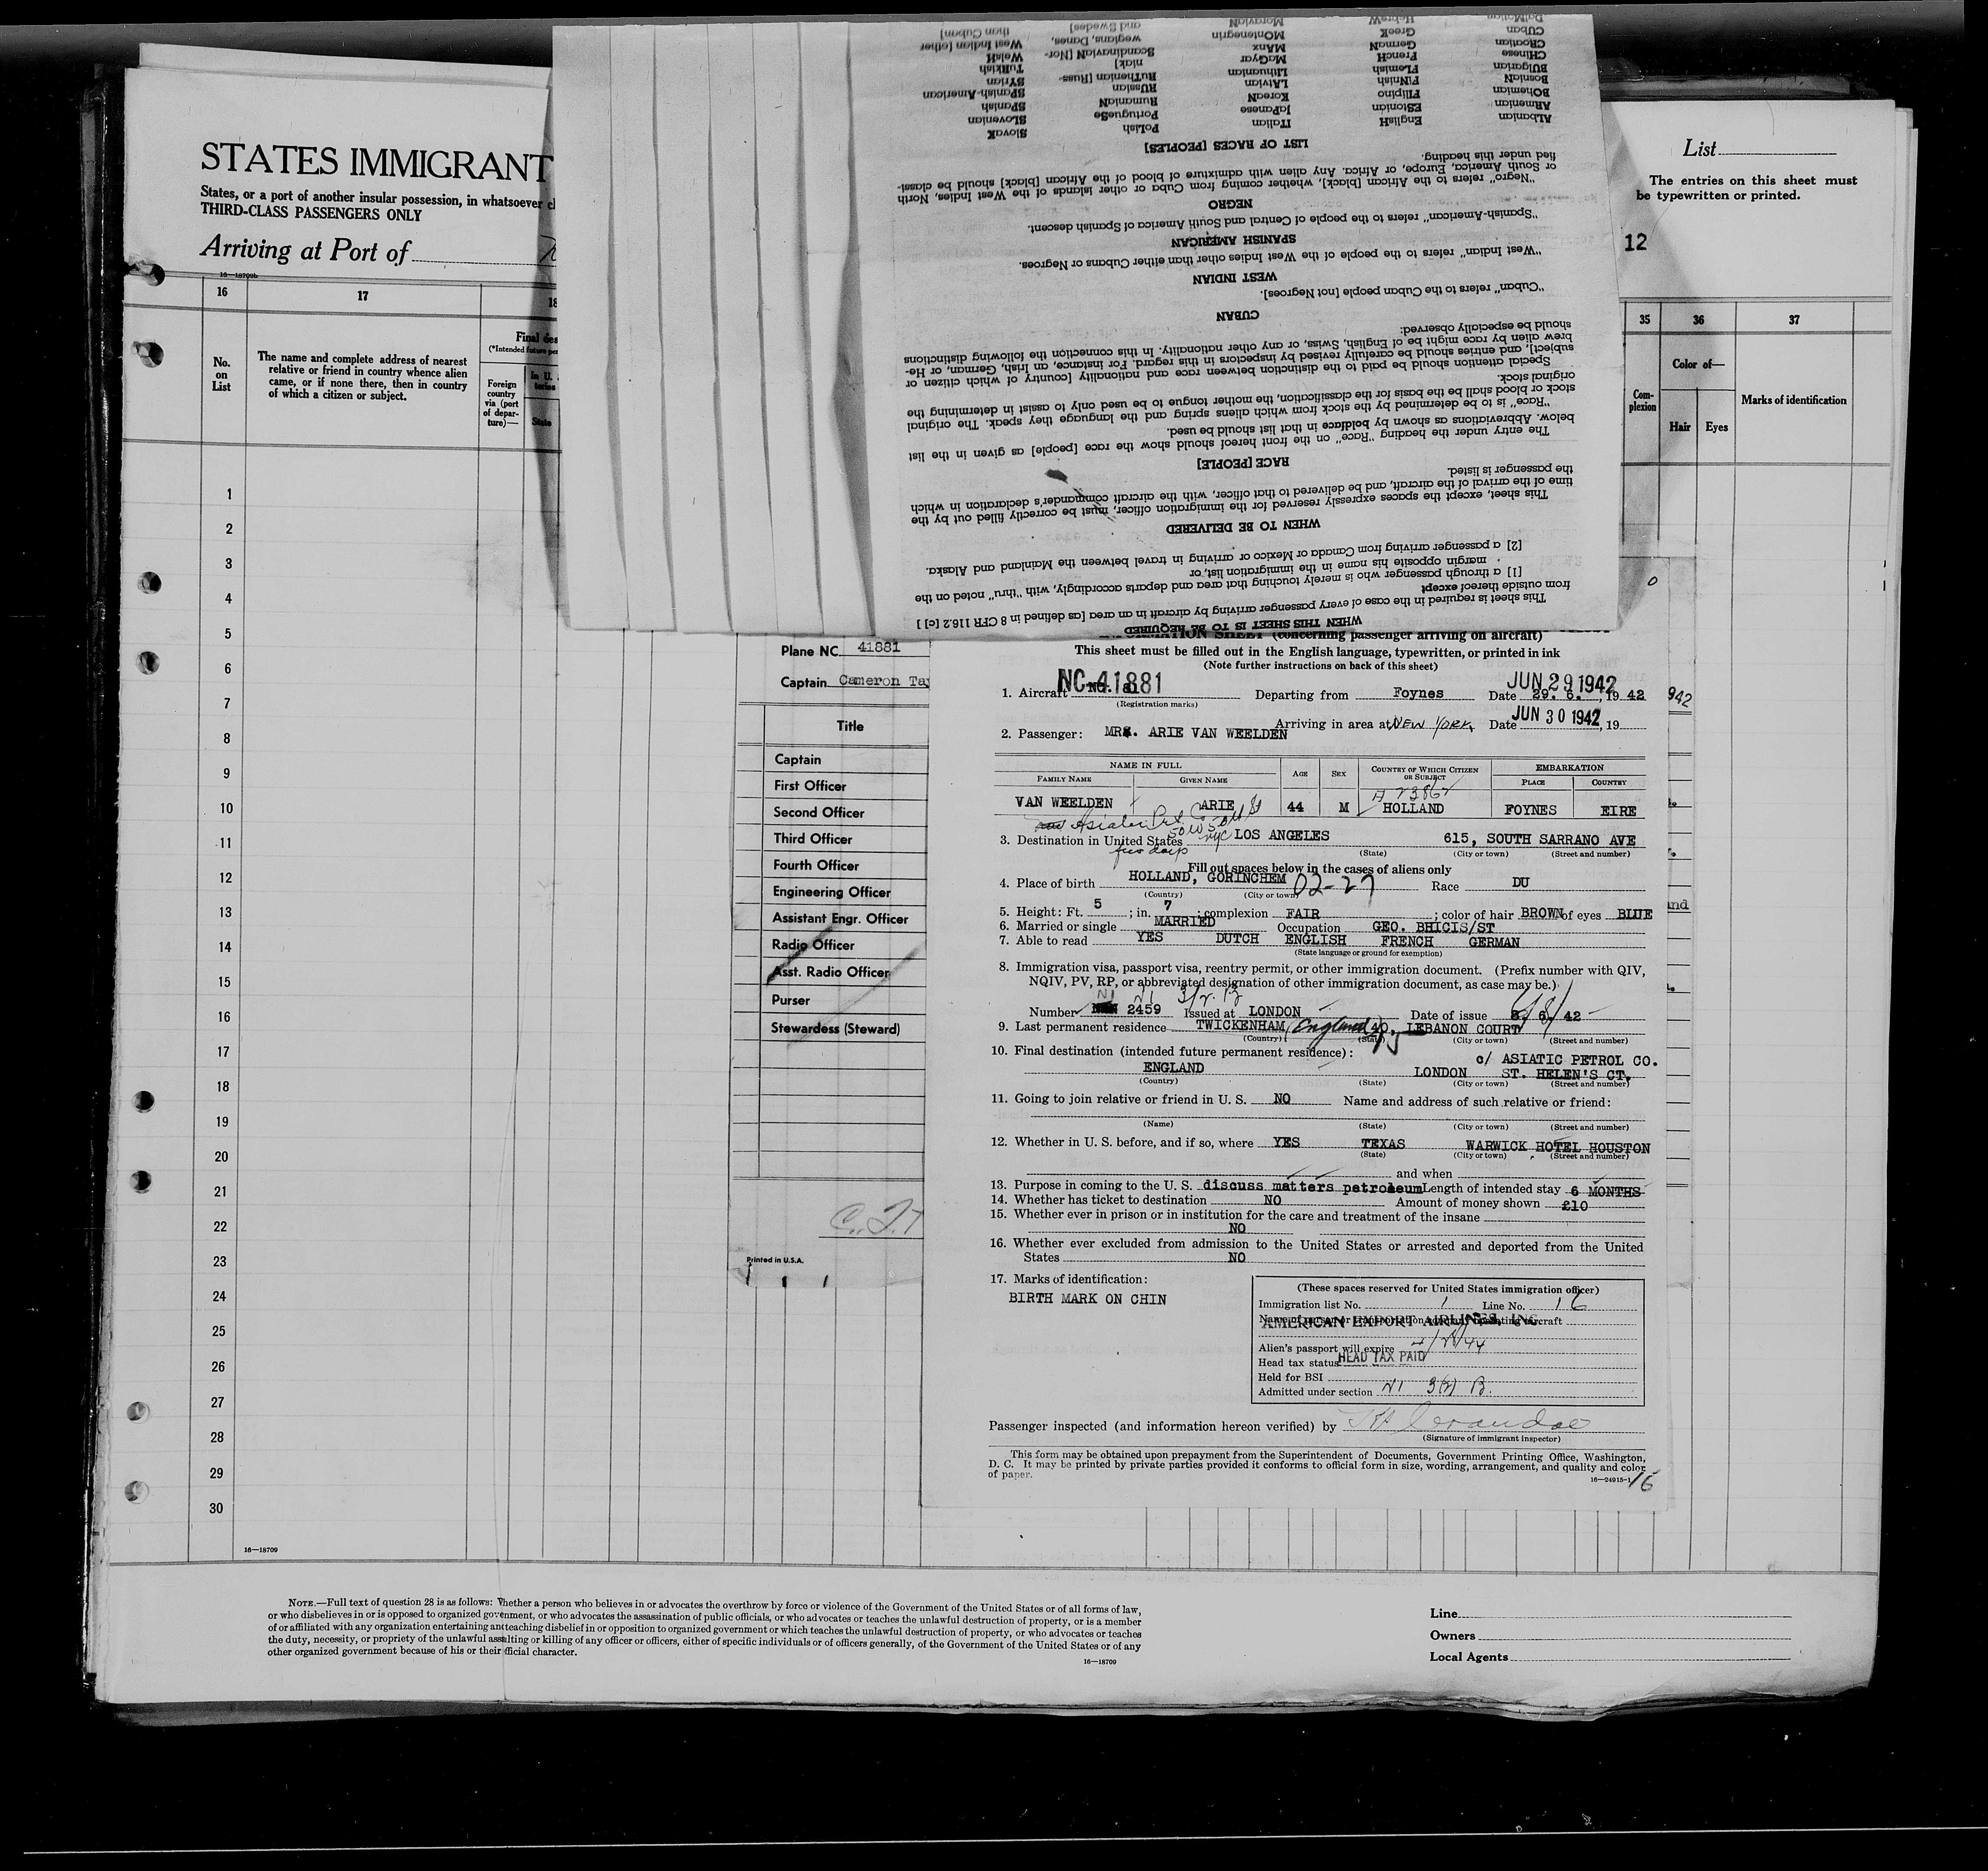 STATES IMMIGRANT
States, or a port of another insular possession, in whatsoever cl
THIRD-CLASS PASSENGERS ONLY
Arriving at Port of
16—18709b
16
17
18
No. on List
The name and complete address of nearest relative or friend in country whence alien came, or if none there, then in country of which a citizen or subject.
Final des
(*Intended future per
Foreign country via (port of departure)—
In U.
State
1
2
3
4
5
6
7
8
9
10
11
12
13
14
15
16
17
18
19
20
21
22
23
24
25
26
27
28
29
30
16—18709
List
The entries on this sheet must
be typewritten or printed.
12
35
36
37
Complexion
Color of—
Hair
Eyes
Marks of identification
WHEN THIS SHEET IS TO BE REQUIRED
This sheet is required in the case of every passenger arriving by aircraft in an area [as defined in 8 CFR 116.2 [c] ]
from outside thereof except
[1] a through passenger who is merely touching that area and departs accordingly, with "thru" noted on the
margin opposite his name in the immigration list, or
[2] a passenger arriving from Canada or Mexico or arriving in travel between the Mainland and Alaska.
WHEN TO BE DELIVERED
This sheet, except the spaces expressly reserved for the immigration officer, must be correctly filled out by the
time of the arrival of the aircraft, and be delivered to that officer, with the aircraft commander's declaration in which
the passenger is listed.
RACE [PEOPLE]
The entry under the heading "Race" on the front hereof should show the race [people] as given in the list
below. Abbreviations as shown by boldface in that list should be used.
"Race" is to be determined by the stock from which aliens spring and the language they speak. The original
stock or blood shall be the basis for the classification, the mother tongue to be used only to assist in determining the
original stock.
Special attention should be paid to the distinction between race and nationality [country of which citizen or
subject], and entries should be carefully revised by inspectors in this regard. For instance, an Irish, German, or He-
brew alien by race might be of English, Swiss, or any other nationality. In this connection the following distinctions
should be especially observed:
CUBAN
"Cuban" refers to the Cuban people [not Negroes].
WEST INDIAN
"West Indian" refers to the people of the West Indies other than either Cubans or Negroes.
SPANISH AMERICAN
"Spanish-American" refers to the people of Central and South America of Spanish descent.
NEGRO
"Negro" refers to the African [black], whether coming from Cuba or other islands of the West Indies, North
or South America, Europe, or Africa. Any alien with admixture of blood of the African [black] should be classi-
fied under this heading.
LIST OF RACES [PEOPLES]
AlBanian EnglisH ITalian PoLish SlovaK
ARmenian EStonian JaPanese PortugueSe SLOvenian
BOhemian FIlipino KoreaN RumaniaN SPanish
BosniaN FiNnish LAtvian RUssian SPanish-American
BUlgarian FLemish LIthuanian RuThenian [Russ- SYrian
CHinese FrencH MaGyar niak] TuRkish
CRoatian GermaN MAnx Scandinavian [Nor- WelsH
CUban GreeK MOntenegrin wegians, Danes, West Indian (other
DalMatian HebreW MoraviaN and Swedes] than Cuban]
Plane NC 41881
Captain Cameron Ta
Title
Captain
First Officer
Second Officer
Third Officer
Fourth Officer
Engineering Officer
Assistant Engr. Officer
Radio Officer
Asst. Radio Officer
Purser
Stewardess (Steward)
Printed in U.S.A.
942
INFORMATION SHEET (concerning passenger arriving on aircraft)
This sheet must be filled out in the English language, typewritten, or printed in ink
(Note further instructions on back of this sheet)
NC-41881 JUN 29 1942
1. Aircraft Departing from Foynes Date 29. 6. 19 42
(Registration marks)
Arriving in area at NEW YORK Date JUN 30 1942, 19
2. Passenger: MR. ARIE VAN WEELDEN
NAME IN FULL AGE SEX COUNTRY OF WHICH CITIZEN OR SUBJECT EMBARKATION
FAMILY NAME GIVEN NAME PLACE COUNTRY
VAN WEELDEN ARIE 44 M HOLLAND FOYNES EIRE
3. Destination in United States NYC LOS ANGELES 615, SOUTH SARRANO AVE
(State) (City or town) (Street and number)
Fill out spaces below in the cases of aliens only
4. Place of birth HOLLAND, GORINCHEM 02-27 Race DU
(Country) (City or town)
5. Height: Ft. 5; in. 7; complexion FAIR; color of hair BROWN of eyes BLUE
6. Married or single MARRIED Occupation GEO. BHICIS/ST
7. Able to read YES DUTCH ENGLISH FRENCH GERMAN
(State language or ground for exemption)
8. Immigration visa, passport visa, reentry permit, or other immigration document. (Prefix number with QIV,
NQIV, PV, RP, or abbreviated designation of other immigration document, as case may be.)
Number 2459 Issued at LONDON Date of issue 8. 6. 42
9. Last permanent residence TWICKENHAM England 40, LEBANON COURT
(Country) (State) (City or town) (Street and number)
10. Final destination (intended future permanent residence): c/ ASIATIC PETROL CO.
ENGLAND LONDON ST. HELEN'S CT.
(Country) (State) (City or town) (Street and number)
11. Going to join relative or friend in U. S. NO Name and address of such relative or friend:
(Name) (State) (City or town) (Street and number)
12. Whether in U. S. before, and if so, where YES TEXAS WARWICK HOTEL HOUSTON
(State) (City or town) (Street and number)
and when
13. Purpose in coming to the U. S. discuss matters petroleum Length of intended stay 6 MONTHS
14. Whether has ticket to destination NO Amount of money shown £10
15. Whether ever in prison or in institution for the care and treatment of the insane
NO
16. Whether ever excluded from admission to the United States or arrested and deported from the United
States NO
17. Marks of identification:
BIRTH MARK ON CHIN
(These spaces reserved for United States immigration officer)
Immigration list No. 1 Line No. 16
AMERICAN EXPORT AIRLINES, INC.
Alien's passport will expire
Head tax status HEAD TAX PAID
Held for BSI
Admitted under section NI 3(2) B.
Passenger inspected (and information hereon verified) by
(Signature of immigrant inspector)
This form may be obtained upon prepayment from the Superintendent of Documents, Government Printing Office, Washington,
D. C. It may be printed by private parties provided it conforms to official form in size, wording, arrangement, and quality and color
of paper.
16—24915-1
16
NOTE.—Full text of question 28 is as follows: Whether a person who believes in or advocates the overthrow by force or violence of the Government of the United States or of all forms of law,
or who disbelieves in or is opposed to organized government, or who advocates the assassination of public officials, or who advocates or teaches the unlawful destruction of property, or is a member
of or affiliated with any organization entertaining and teaching disbelief in or opposition to organized government or which teaches the unlawful destruction of property, or who advocates or teaches
the duty, necessity, or propriety of the unlawful assaulting or killing of any officer or officers, either of specific individuals or of officers generally, of the Government of the United States or of any
other organized government because of his or their official character.
16—18709
Line
Owners
Local Agents